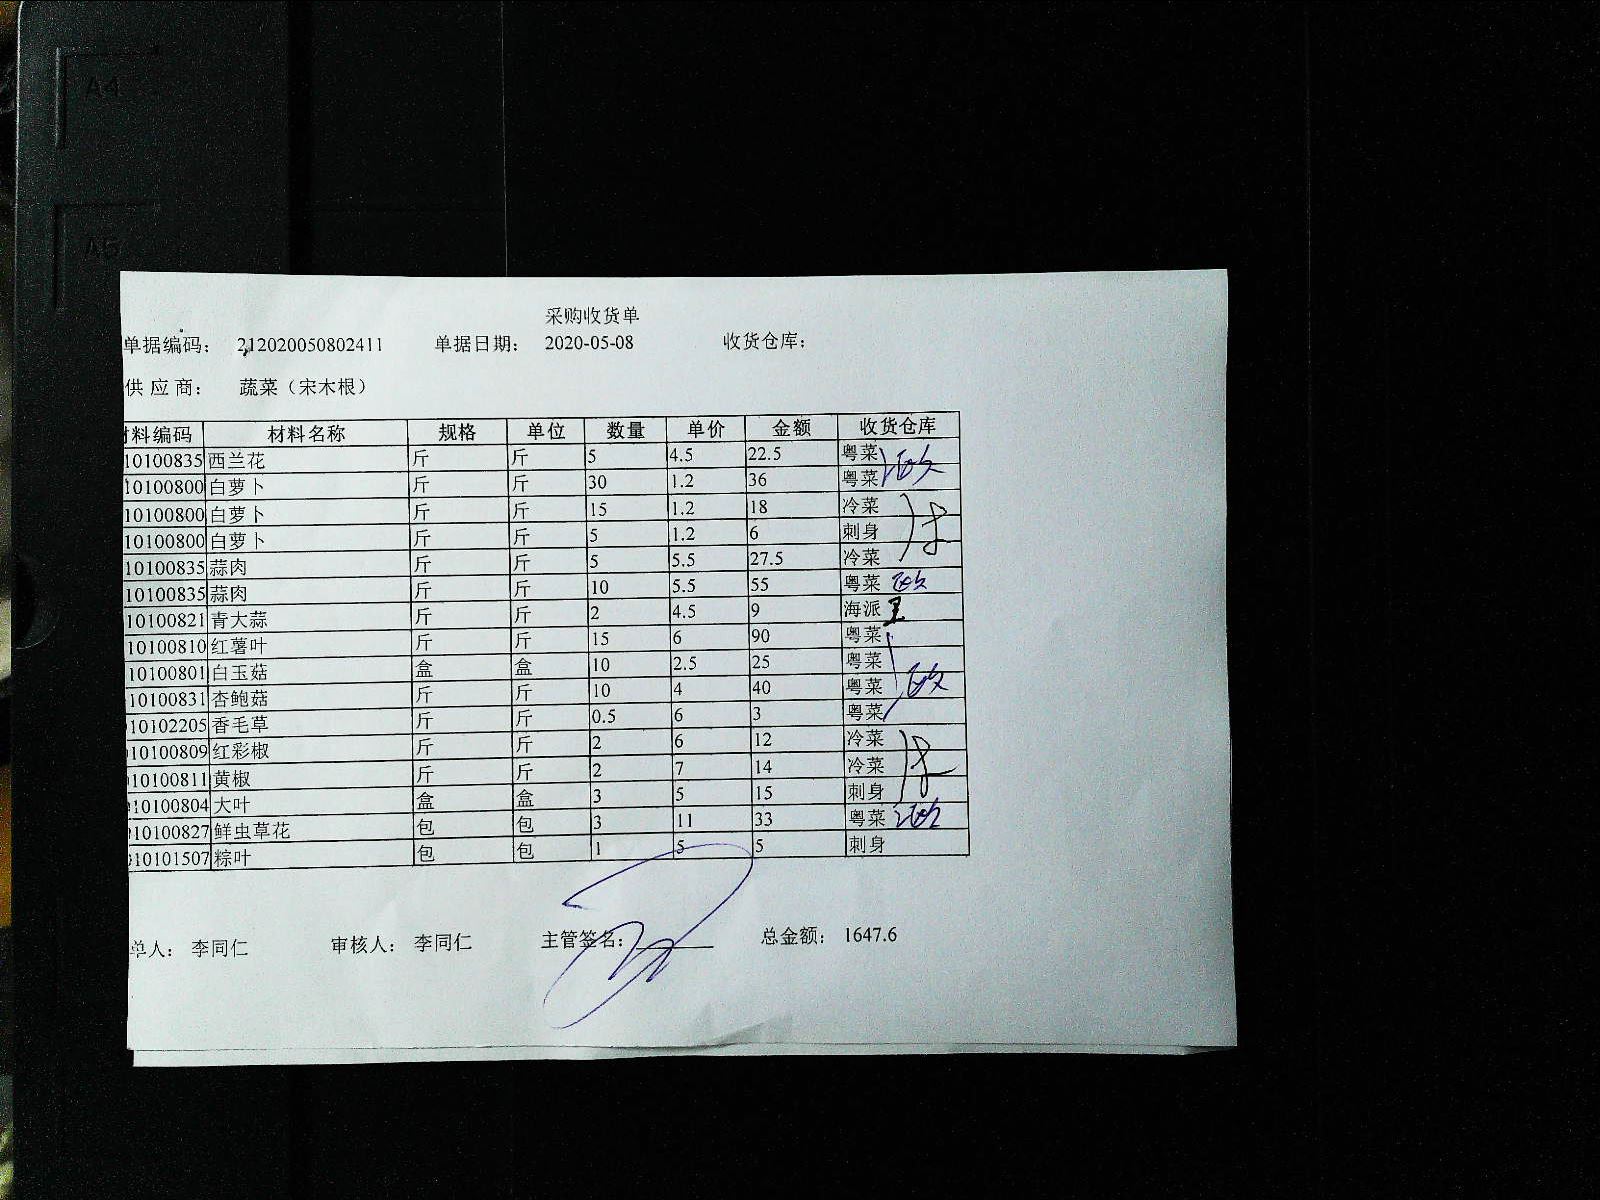 A4
A5
采购收货单
单据编码： 212020050802411 单据日期： 2020-05-08 收货仓库：
供 应 商： 蔬菜（宋木根）
材料编码 材料名称 规格 单位 数量 单价 金额 收货仓库
10100835 西兰花 斤 斤 5 4.5 22.5 粤菜
10100800 白萝卜 斤 斤 30 1.2 36 粤菜
10100800 白萝卜 斤 斤 15 1.2 18 冷菜
10100800 白萝卜 斤 斤 5 1.2 6 刺身
10100835 蒜肉 斤 斤 5 5.5 27.5 冷菜
10100835 蒜肉 斤 斤 10 5.5 55 粤菜
10100821 青大蒜 斤 斤 2 4.5 9 海派
10100810 红薯叶 斤 斤 15 6 90 粤菜
10100801 白玉菇 盒 盒 10 2.5 25 粤菜
10100831 杏鲍菇 斤 斤 10 4 40 粤菜
10102205 香毛草 斤 斤 0.5 6 3 粤菜
10100809 红彩椒 斤 斤 2 6 12 冷菜
10100811 黄椒 斤 斤 2 7 14 冷菜
10100804 大叶 盒 盒 3 5 15 刺身
10100827 鲜虫草花 包 包 3 11 33 粤菜
10101507 粽叶 包 包 1 5 5 刺身
单人： 李同仁 审核人： 李同仁 主管签名： 总金额： 1647.6